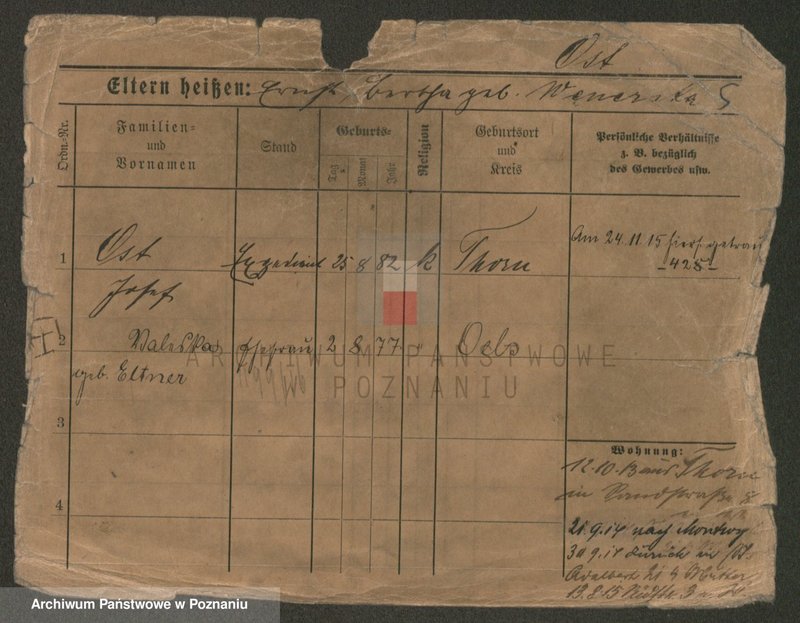 Ost
Eltern heißen: Ernst, Bertha geb.
Ordn.-Nr.
Familien- und Vornamen
Stand
Geburts-
Tag
Monat
Jahr
Religion
Geburtsort und Kreis
Persönliche Verhältnisse z. B. bezüglich des Gewerbes usw.
1 Ost 25 8 82 k Thorn
Am 24.11.15 hierf. getraut
-425-
Josef
I
2 Valeska Ehefrau 2 8 77 " Oels
geb. Eltner
3
4
Wohnung:
12.10.13 aus Thorn
in
21.9.14 nach
30.9.14 zurück in St.
Adalbert 21
13.8.15
ARCHIWUM PAŃSTWOWE
W POZNANIU
Archiwum Państwowe w Poznaniu